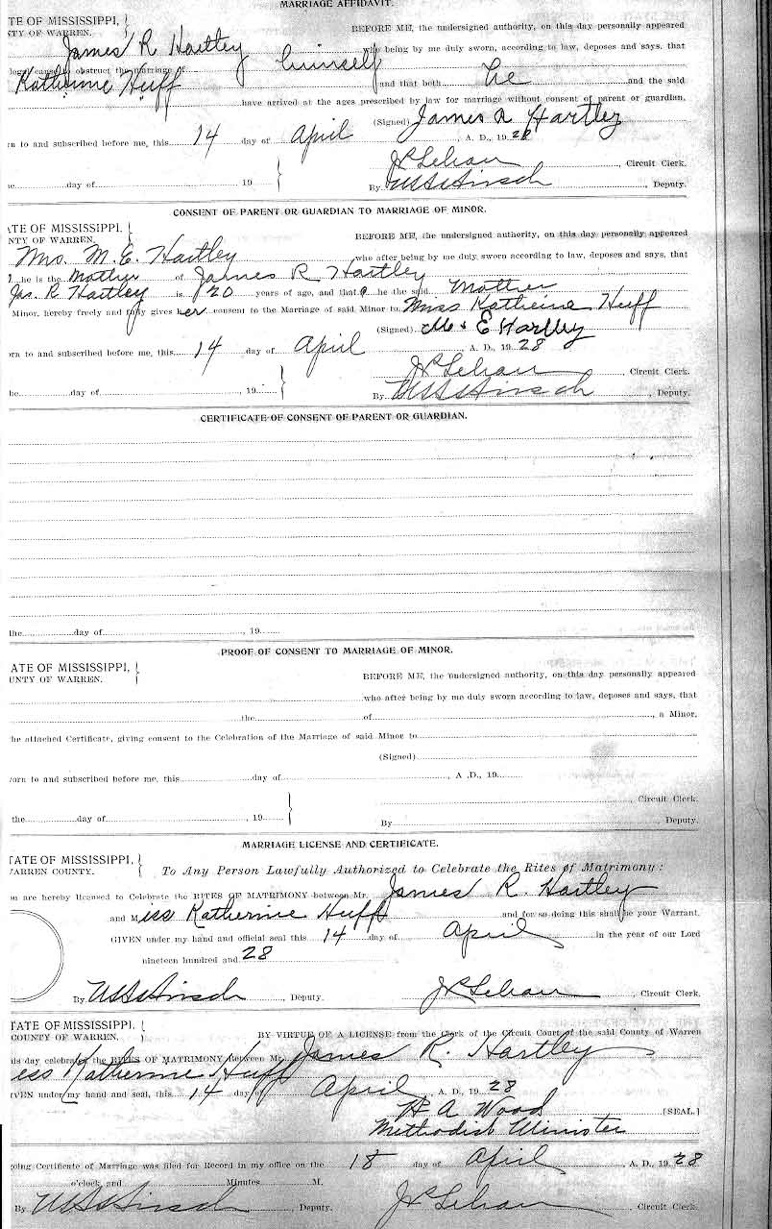 MARRIAGE AFFIDAVIT.
TE OF MISSISSIPPI,
TY OF WARREN.
BEFORE ME, the undersigned authority, on this day personally appeared
James R Hartley who being by me duly sworn, according to law, deposes and says, that
obstruct the marriage of himself
Katherine Huff and that both he and the said
have arrived at the ages prescribed by law for marriage without consent of parent or guardian.
(Signed) James R Hartley
rn to and subscribed before me, this 14 day of April A. D., 19 28
, Circuit Clerk.
he day of 19 By , Deputy.
CONSENT OF PARENT OR GUARDIAN TO MARRIAGE OF MINOR.
TE OF MISSISSIPPI,
NTY OF WARREN.
BEFORE ME, the undersigned authority, on this day personally appeared
Mrs. M. E. Hartley who after being by me duly sworn according to law, deposes and says, that
he is the Mother of James R Hartley
Jas. R Hartley is 20 years of age, and that he the said Mother
Minor, hereby freely and fully gives her consent to the Marriage of said Minor to Miss Katherine Huff
(Signed) M E Hartley
rn to and subscribed before me, this 14 day of April A. D., 19 28
, Circuit Clerk.
he day of , 19 By , Deputy.
CERTIFICATE OF CONSENT OF PARENT OR GUARDIAN.
the day of , 19
PROOF OF CONSENT TO MARRIAGE OF MINOR.
ATE OF MISSISSIPPI,
UNTY OF WARREN.
BEFORE ME, the undersigned authority, on this day personally appeared
who after being by me duly sworn according to law, deposes and says, that
the of , a Minor,
he attached Certificate, giving consent to the Celebration of the Marriage of said Minor to
(Signed)
orn to and subscribed before me, this day of , A .D., 19
, Circuit Clerk.
the day of , 19 By , Deputy.
MARRIAGE LICENSE AND CERTIFICATE.
TATE OF MISSISSIPPI,
ARREN COUNTY.
To Any Person Lawfully Authorized to Celebrate the Rites of Matrimony:
are hereby licensed to Celebrate the RITES OF MATRIMONY between Mr. James R. Hartley
and Miss Katherine Huff and for so doing this shall be your Warrant.
GIVEN under my hand and official seal this 14 day of April in the year of our Lord
nineteen hundred and 28
By , Deputy. , Circuit Clerk.
TATE OF MISSISSIPPI,
COUNTY OF WARREN.
BY VIRTUE OF A LICENSE from the Clerk of the Circuit Court of the said County of Warren
is day celebrated the RITES OF MATRIMONY between Mr James R. Hartley
iss Katherine Huff
VEN under my hand and seal, this 14 day of April A. D., 19 28
A Wood [SEAL.]
Methodist Minister
oing Certificate of Marriage was filed for Record in my office on the 18 day of April , A. D., 19 28
o'clock and Minutes M.
By , Deputy. , Circuit Clerk.